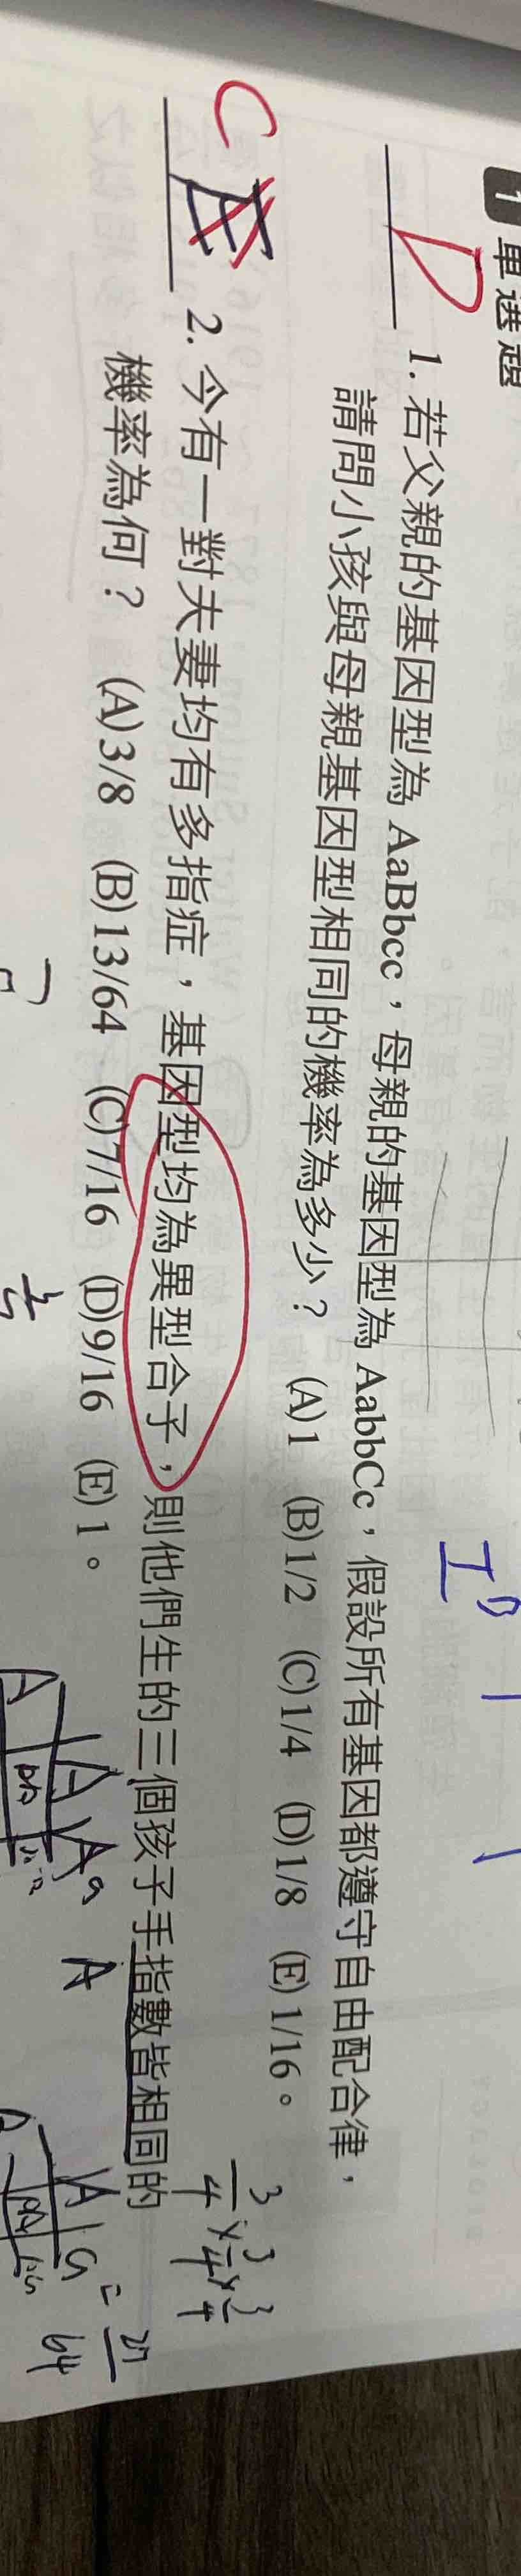 1 單選題
D 1. 若父親的基因型為 AaBbcc，母親的基因型為 AabbCc，假設所有基因都遵守自由配合律，
請問小孩與母親基因型相同的機率為多少？ (A)1 (B)1/2 (C)1/4 (D)1/8 (E)1/16。
C E 2. 今有一對夫妻均有多指症，基因型均為異型合子，則他們生的三個孩子手指數皆相同的
機率為何？ (A)3/8 (B)13/64 (C)7/16 (D)9/16 (E)1。
3/4 × 3/4 × 3/4
= 27/64
A a
A
A
A a